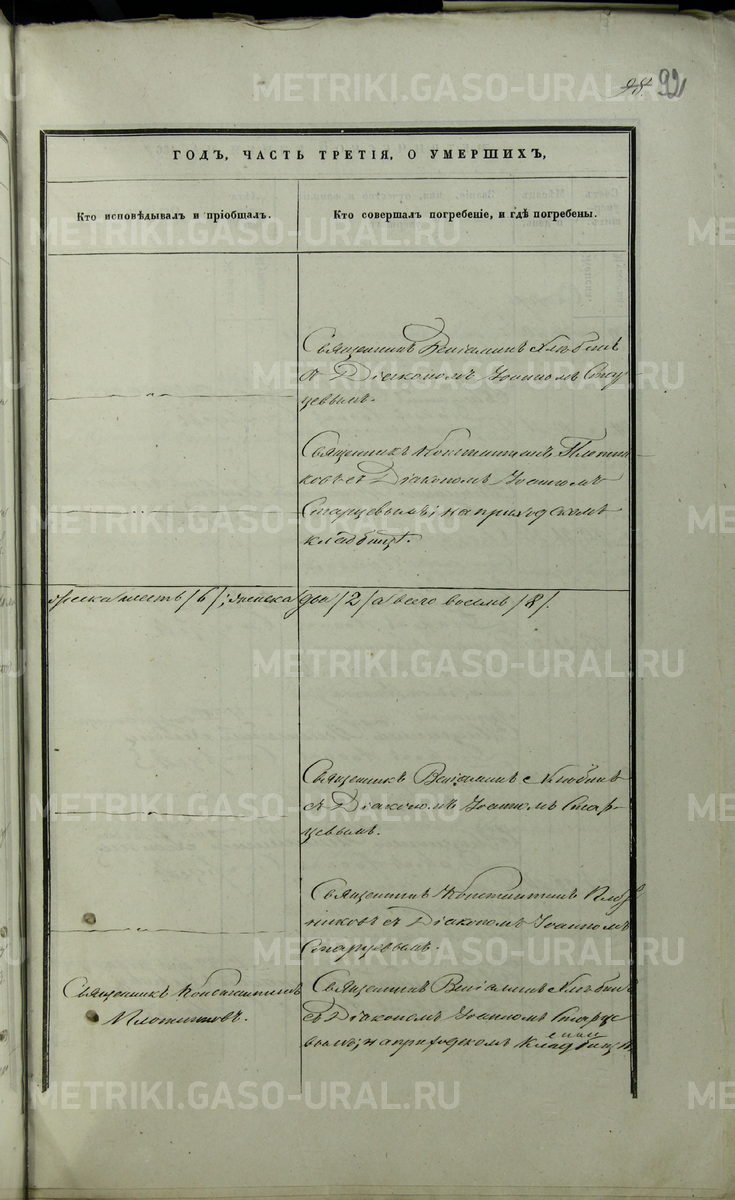 98. 92
ГОДЪ, ЧАСТЬ ТРЕТІЯ, О УМЕРШИХЪ,
Кто исповѣдывалъ и пріобщалъ.
Кто совершалъ погребеніе, и гдѣ погребены.
Священникъ Веніаминъ
съ Діакономъ Іоанномъ Стар-
цевымъ.
Священникъ Константинъ Плотни-
ковъ съ Діакономъ Іоанномъ
Старцевымъ; на приходскомъ
кладбищѣ.
пола шесть /6/; женска два /2/ а всего восемь /8/.
Священникъ Веніаминъ
съ Діакономъ Іоанномъ Стар-
цевымъ.
Священникъ Константинъ Плот-
никовъ съ Діакономъ Іоанномъ
Старцевымъ.
Священникъ Константинъ
Плотниковъ.
Священникъ Веніаминъ
съ Діакономъ Іоанномъ Старце
вымъ; на приходскомъ кладбищѣ.
METRIKI.GASO-URAL.RU